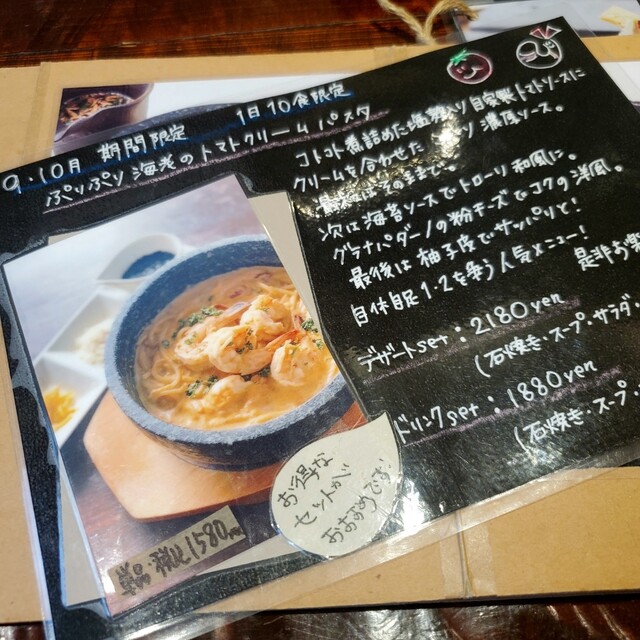 9.10月 期間限定 1日10食限定
ぷりぷり海老のトマトクリームパスタ
コトコト煮詰めた 入り自家製トマトソースに
クリームを合わせた 濃厚ソース。
最初はそのままで。
次は海苔ソースでトローリ和風に。
グラナパダーノの粉チーズでコクの洋風。
最後は柚子皮でサッパリと!
自体自足1・2を争う人気メニュー! 是非お
デザートset:2180yen
(石焼き・スープ・サラダ・
ドリンクset:1880yen
(石焼き・スープ・
お得な
セットが
おすすめです
単品・税込1580